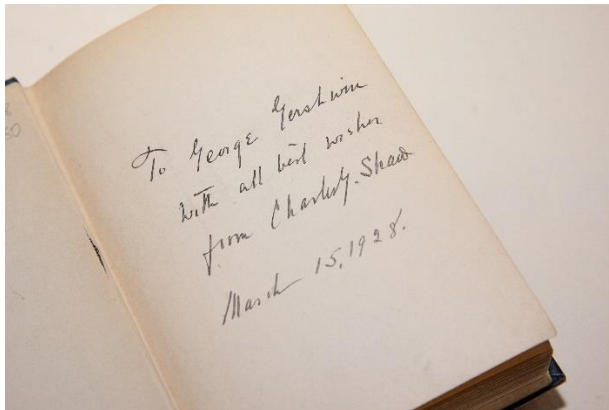 To George Gershwin
with all best wishes
from Charles G. Shaw
March 15, 1928.